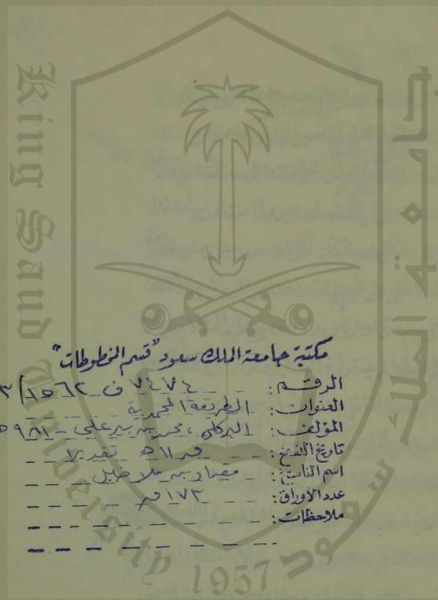 King Saud University
جامعة الملك سعود
1957
مكتبة جامعة الملك سعود "قسم المخطوطات"
الرقم: ٧٤٧٤ ف ١٥٦٢/٣
العنوان: الطريقة المحمدية
المؤلف: البركلي، محمد بن بير علي - ٩٨١ه
تاريخ النسخ: ق ١١ه تقديرا
اسم الناسخ: بن ملا خليل
عدد الأوراق: ١٧٣ ق
ملاحظات: